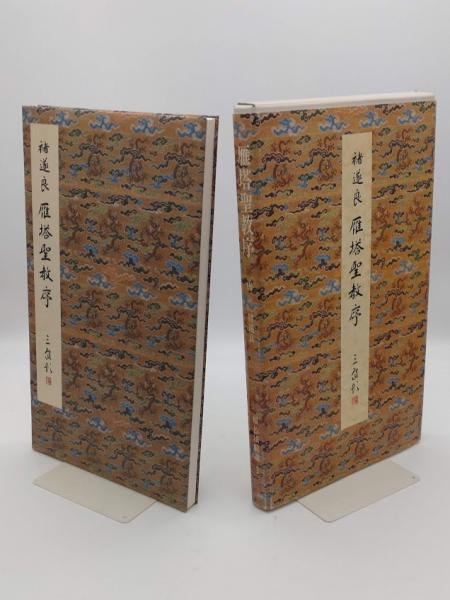 褚遂良 雁塔聖教序
雁塔聖教序
褚遂良 雁塔聖教序